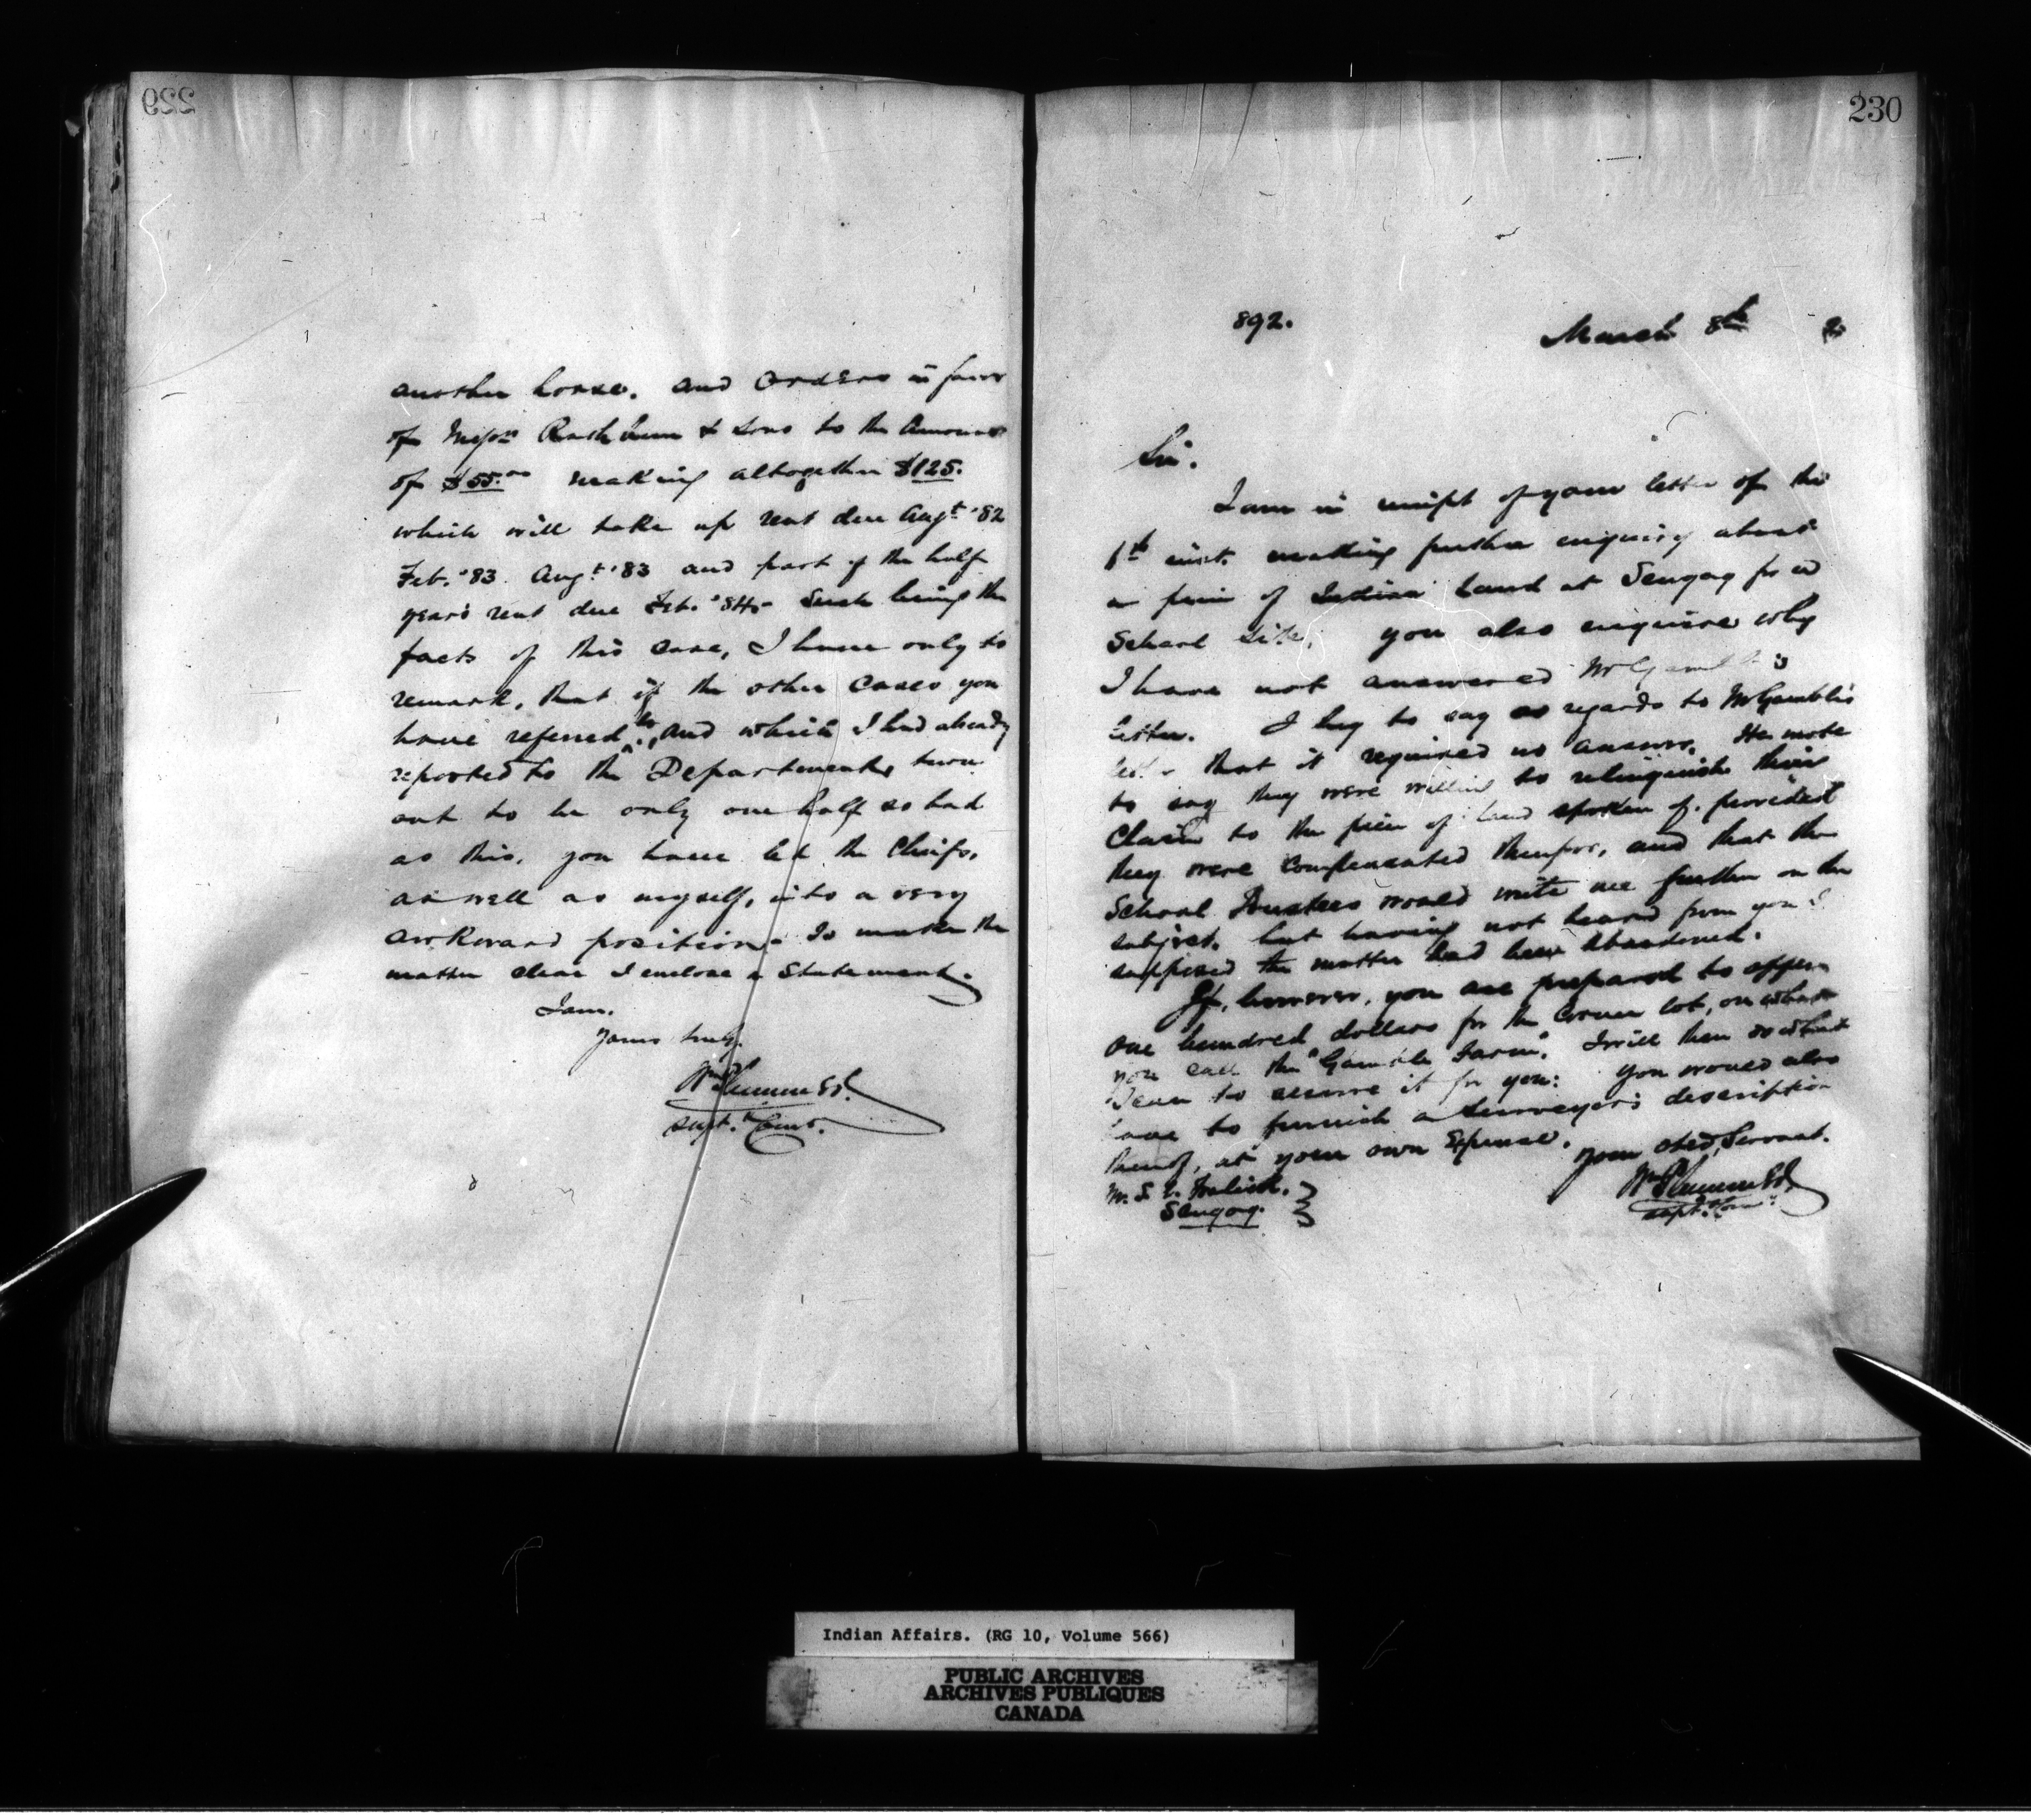 229
another horse. and orders in favor
of Messrs Rathbun & Sons to the Amount
of $55.00 making altogether $125.
which will take up rent due Augt. '82
Feb. '83. Augt. '83 and part of the half
year's rent due Feb. '84. Such being the
facts of this case, I have only to
remark, that if the other cases you
have referred to, and which I had already
reported to the Department, turn
out to be only one half so bad
as this, you have led the Chiefs,
as well as myself, into a very
awkward position. To make the
matter clear I enclose a Statement.
I am.
Yours truly.
Wm Plummer
Supt. & Comr.
230
892.
March 8th 2
Sir.
I am in receipt of your letter of the
inst. making further enquiry about
a piece of Indian Land at Scugog for a
School Site. you also enquire why
I have not answered Mr Gamble's
letter. I beg to say as regards to Mr Gamble's
letter that it required no answer. He wrote
to say they were willing to relinquish their
Claim to the piece of land spoken of. provided
they were compensated therefor, and that the
School Trustees would write me further on the
subject. but having not heard from you I
supposed the matter had been abandoned.
If, however, you are prepared to offer
one hundred dollars for the Corner lot, on what
you call the "Gamble Farm". I will then do what
I can to secure it for you: you would also
have to furnish a Surveyor's description
thereof, at your own Expense.
your obed. Servant.
Wm Plummer
Supt. Comr.
Mr. S.
Scugog.
Indian Affairs. (RG 10, Volume 566)
PUBLIC ARCHIVES
ARCHIVES PUBLIQUES
CANADA